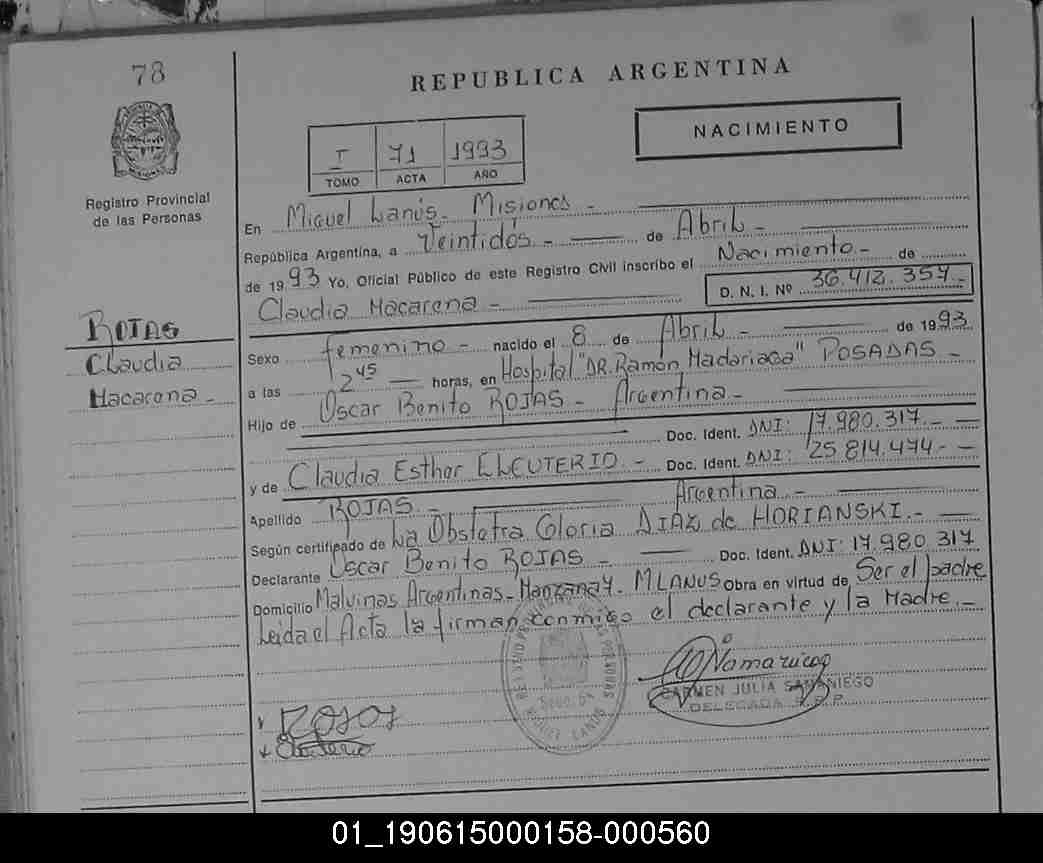 78
REPUBLICA ARGENTINA
NACIMIENTO
I 71 1993
TOMO ACTA AÑO
Registro Provincial
de las Personas
En Miguel Lanús - Misiones -
República Argentina, a Veintidós - de Abril -
de 1993 Yo, Oficial Público de este Registro Civil inscribo el Nacimiento - de
Claudia Macarena - D. N. I. Nº 36.412.357.-
ROJAS
Claudia
Macarena -
Sexo femenino - nacido el 8 de Abril - de 1993
a las 2 45 horas, en Hospital "DR. Ramón Madariaga" POSADAS -
Hijo de Oscar Benito ROJAS - Argentina -
Doc. Ident. DNI: 17.980.317.-
y de Claudia Esther ELEUTERIO - Doc. Ident. DNI: 25.814.474 -
Argentina -
Apellido ROJAS -
Según certificado de La Obstetra Gloria DIAZ de HORIANSKI. -
Declarante Oscar Benito ROJAS - Doc. Ident. DNI: 17.980.317
Domicilio Malvinas Argentinas - Manzana 4 - M LANUS Obra en virtud de Ser el padre
Leida el Acta la firman conmigo el declarante y la Madre. -
CARMEN JULIA SAMANIEGO
DELEGADA R.P.P.
MIGUEL LANUS
Rojas
Eleuterio
01_190615000158-000560